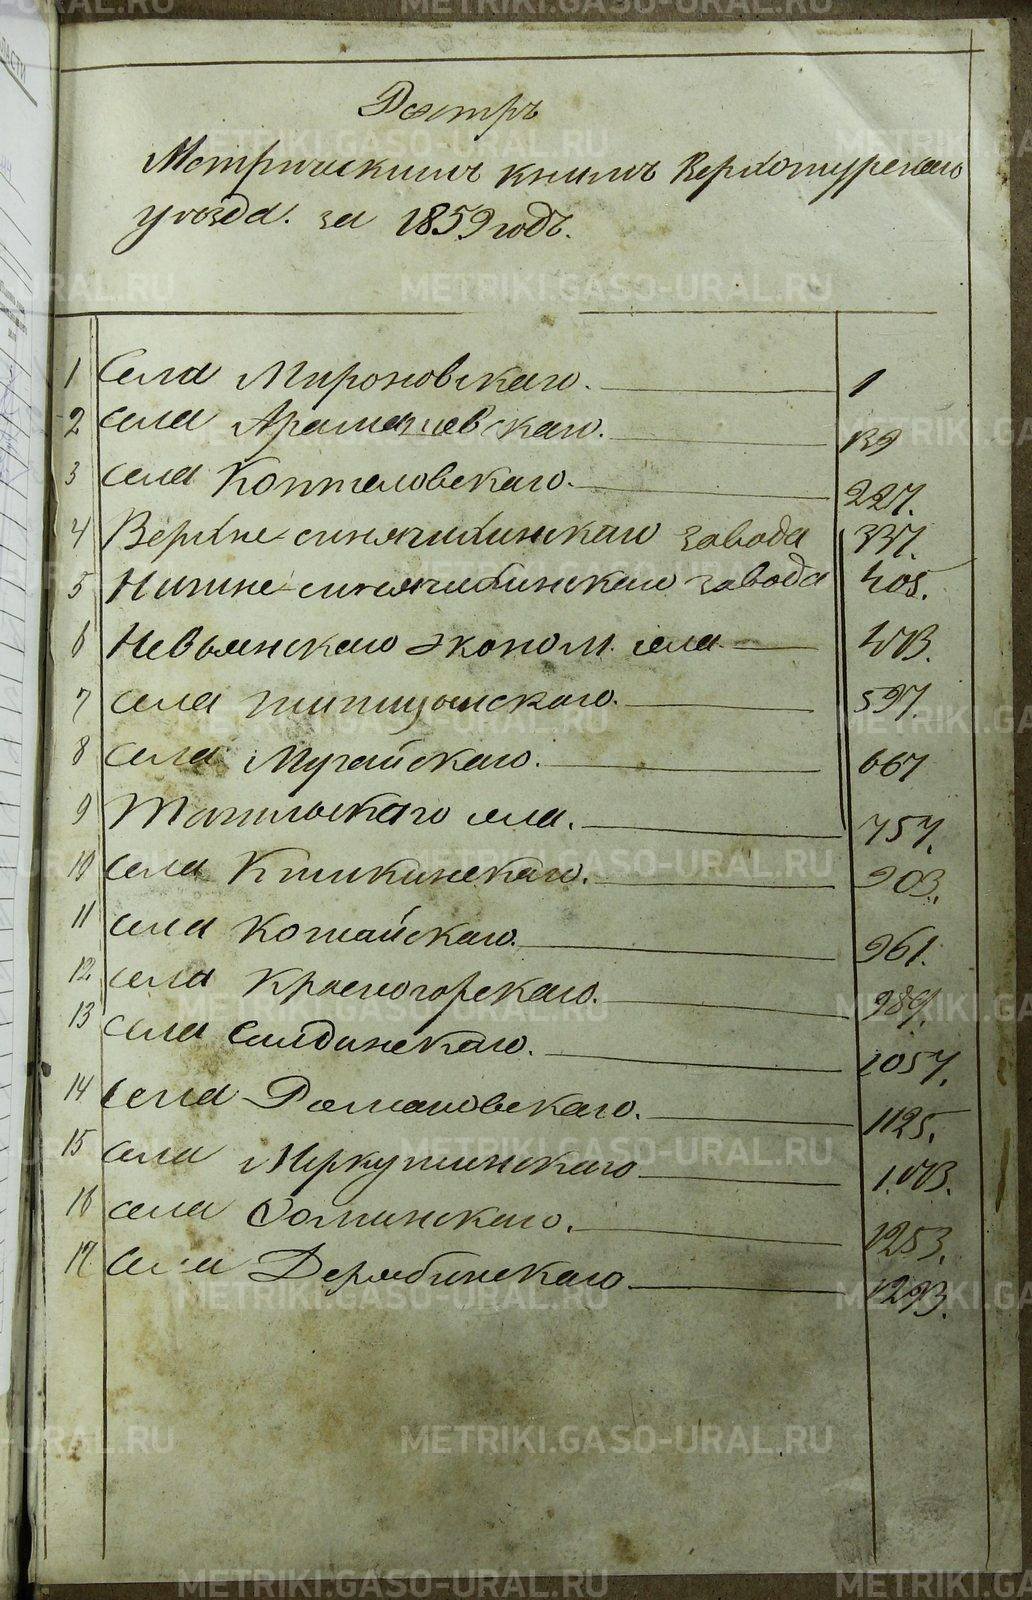 Реэстръ
Метрическимъ книгамъ Верхотурскаго
уѣзда. за 1859 годъ.
1 Села Мироновскаго. 1
2 села Арамашевскаго. 139
3 села Коптеловскаго. 227.
4 Верхне-синячихинскаго завода 337.
5 Нижне-синячихинскаго завода 405.
6 Невьянскаго эконом. села 473.
7 села Шипицынскаго. 597.
8 села Мугайскаго. 667
9 Тагильскаго села. 757.
10 села Кишкинскаго. 903.
11 села Котайскаго. 961.
12 села Красногорскаго. 989.
13 села Салдинскаго. 1057.
14 Села Романовскаго. 1125.
15 села Меркушинскаго 1173.
16 села Фоминскаго. 1253.
17 Села Дерябинскаго 1293.
METRIKI.GASO-URAL.RU